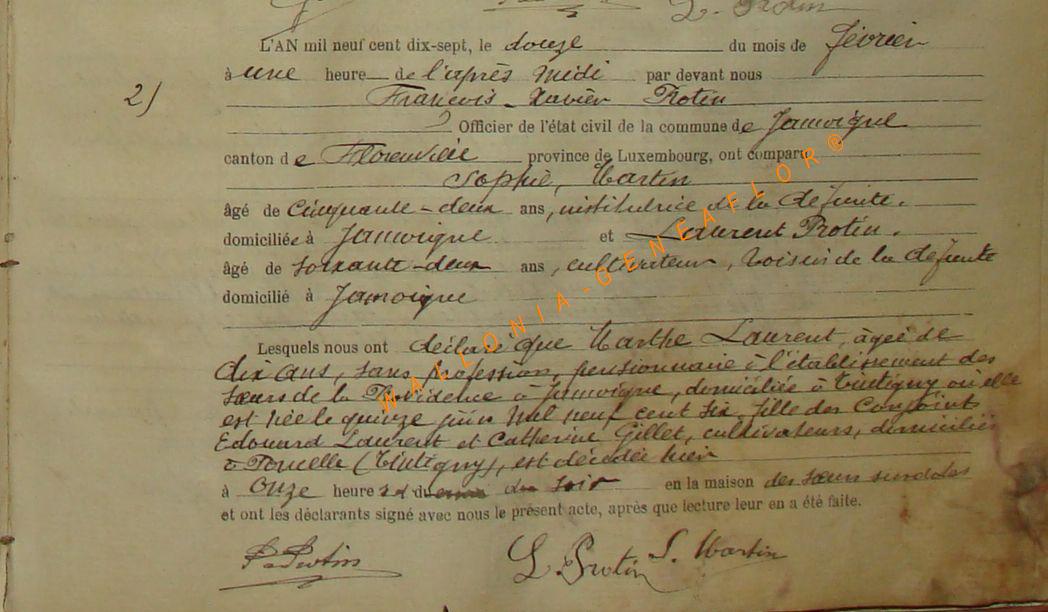 L. Protin
L'AN mil neuf cent dix-sept, le douze du mois de février
à une heure de l'après midi par devant nous
2) François-Xavier Protin
Officier de l'état civil de la commune de Jamoigne
canton de Florenville province de Luxembourg, ont comparu
Sophie, Martin
âgé de cinquante-deux ans, institutrice de la défunte.
domiciliée à Jamoigne et Laurent Protin.
âgé de soixante-deux ans, cultivateur, voisin de la défunte
domicilié à Jamoigne
Lesquels nous ont déclaré que Marthe Laurent, âgée de
dix ans, sans profession, pensionnaire à l'établissement des
sœurs de la Providence à Jamoigne, domiciliée à Tintigny où elle
est née le quinze juin mil neuf cent six, fille des conjoints
Edouard Laurent et Catherine Gillet, cultivateurs, domiciliés
à (Tintigny), est décédée hier
à onze heures du soir en la maison des sœurs susdites
et ont les déclarants signé avec nous le présent acte, après que lecture leur en a été faite.
L. Protin S. Martin
WALLONIA-GENEAFLOR©